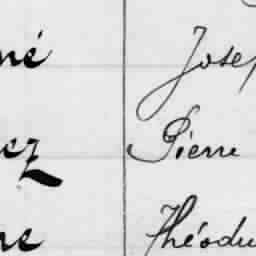 né Josep
ez Pierre
ne Théodu